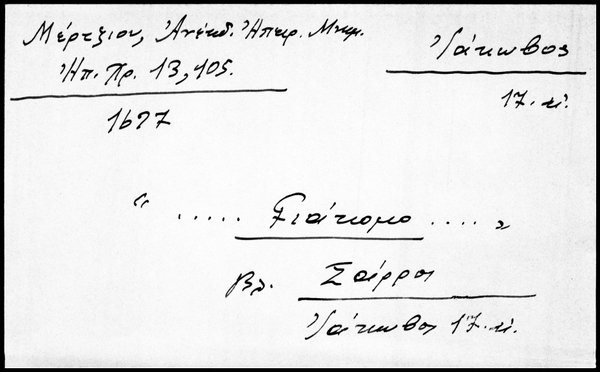 Μέρτζιου, Ἀνέκδ. Ἠπειρ. Μνημ.
Ἠπ. Χρ. 13, 105.
1677
Ἰάκωβος
17. αἰ.
“ ..... Γιάκομο .... „
βλ. Σαίρρος
Ἰάκωβος 17. αἰ.